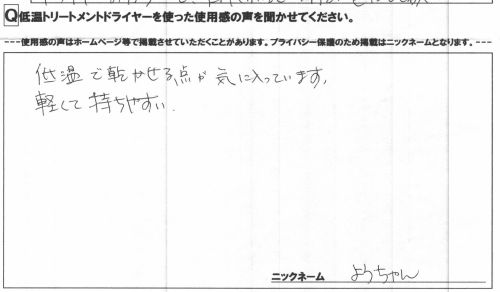 Q低温トリートメントドライヤーを使った使用感の声を聞かせてください。
---使用感の声はホームページ等で掲載させていただくことがあります。プライバシー保護のため掲載はニックネームとなります。---
低温で乾かせる点が気に入っています。
軽くて持ちやすい。
ニックネーム ようちゃん